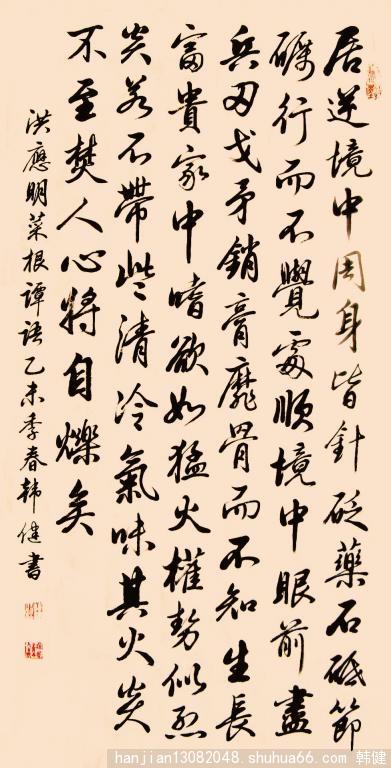 居逆境中周身皆針砭藥石砥節
礪行而不覺處順境中眼前盡
兵刃戈矛銷膏靡骨而不知生長
富貴家中嗜欲如猛火權勢似烈
炎若不帶些清冷氣味其火炎
不至焚人心將自爍矣
洪應明菜根譚語乙未季春韩健書
hanjian13082048.shuhua66.com 韩健